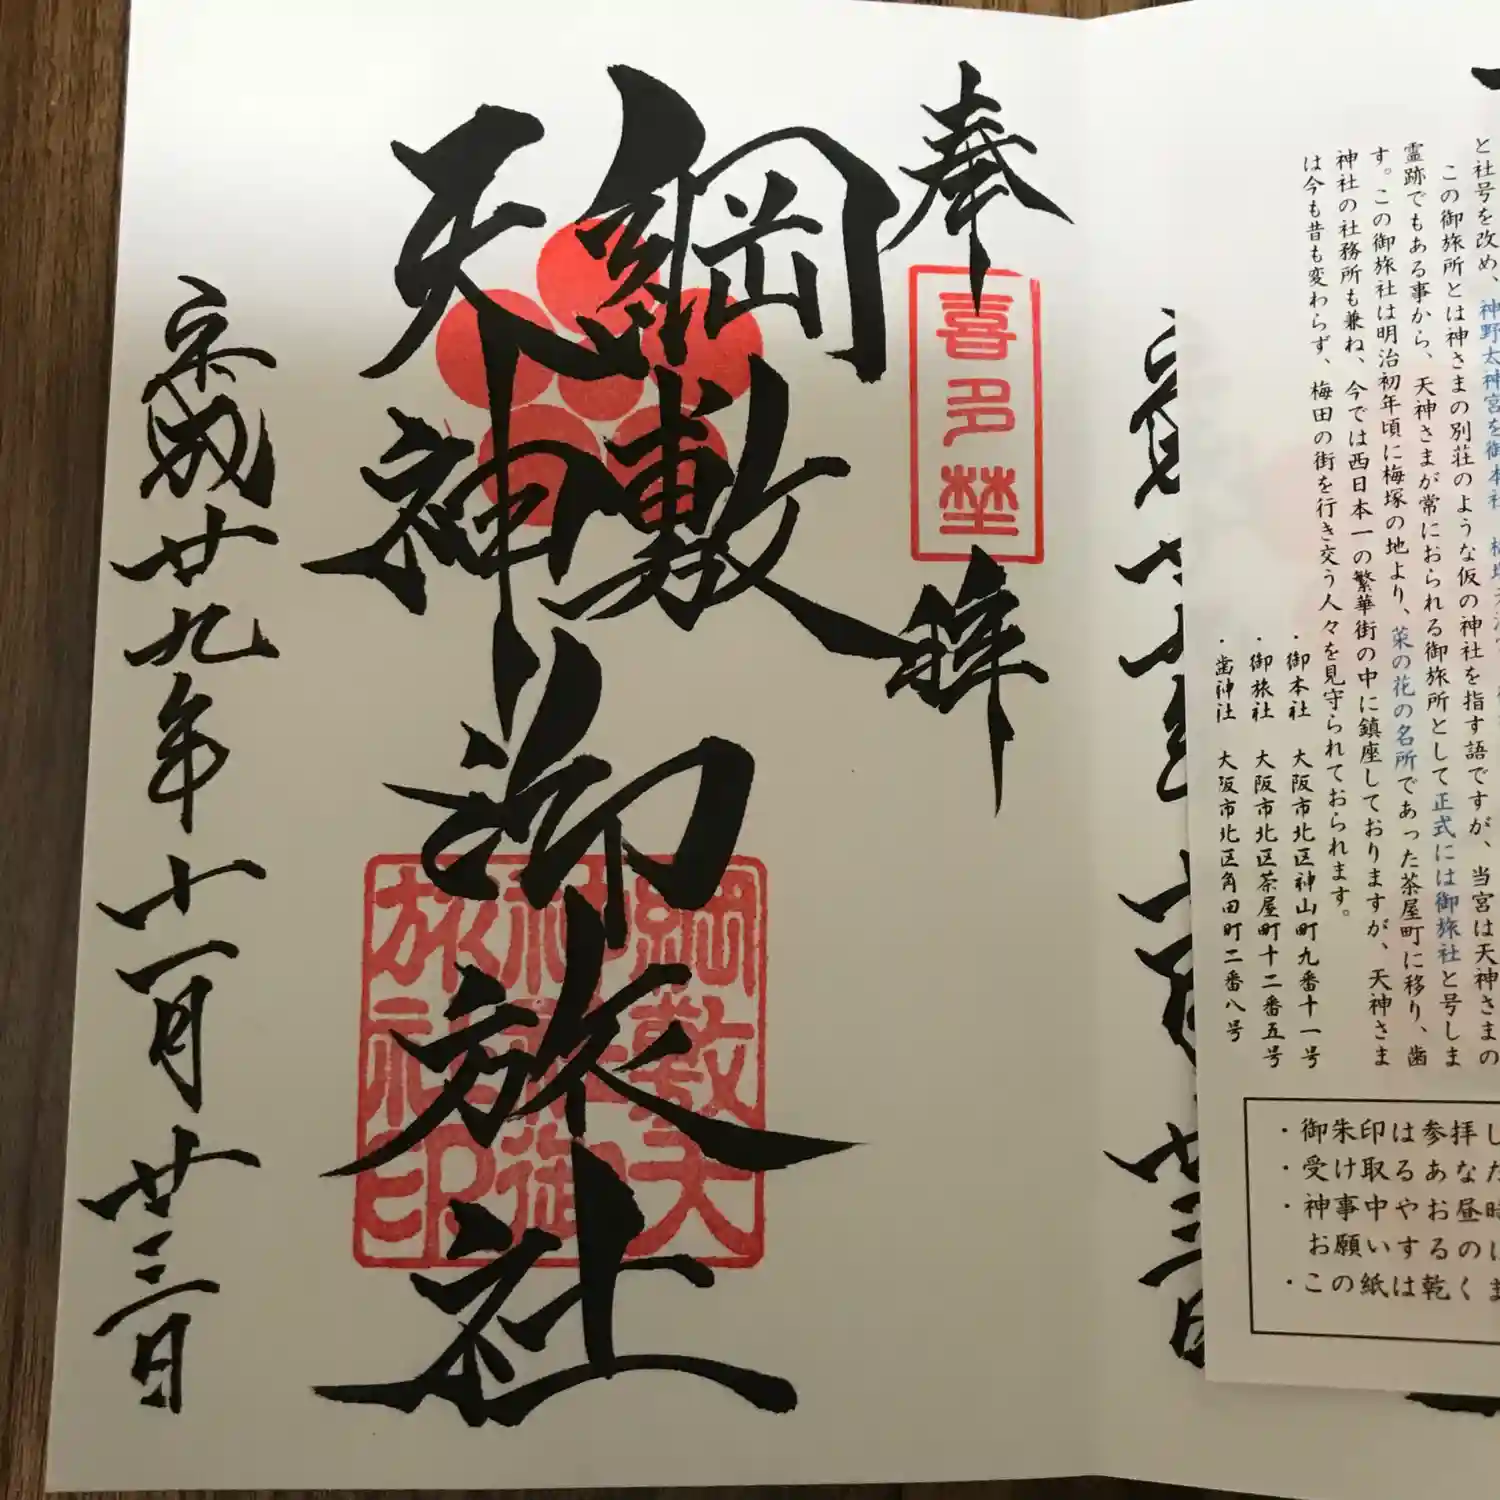 と社号を改め、神野太神宮を御本社
この御旅所とは神さまの別荘のような仮の神社を指す語ですが、当宮は天神さまの
霊跡でもある事から、天神さまが常におられる御旅所として正式には御旅社と号しま
す。この御旅社は明治初年頃に梅塚の地より、菜の花の名所であった茶屋町に移り、歯
神社の社務所も兼ね、今では西日本一の繁華街の中に鎮座しておりますが、天神さま
は今も昔も変わらず、梅田の街を行き交う人々を見守られております。
・御本社 大阪市北区神山町九番十一号
・御旅社 大阪市北区茶屋町十二番五号
・歯神社 大阪市北区角田町二番八号
・御朱印は参拝し
・受け取るあなた
・神事中やお昼時
お願いするのに
・この紙は乾くま
奉拝
喜多埜
綱敷
天神
御旅社
綱敷天
神御
旅社印
平成廿九年十一月廿三日